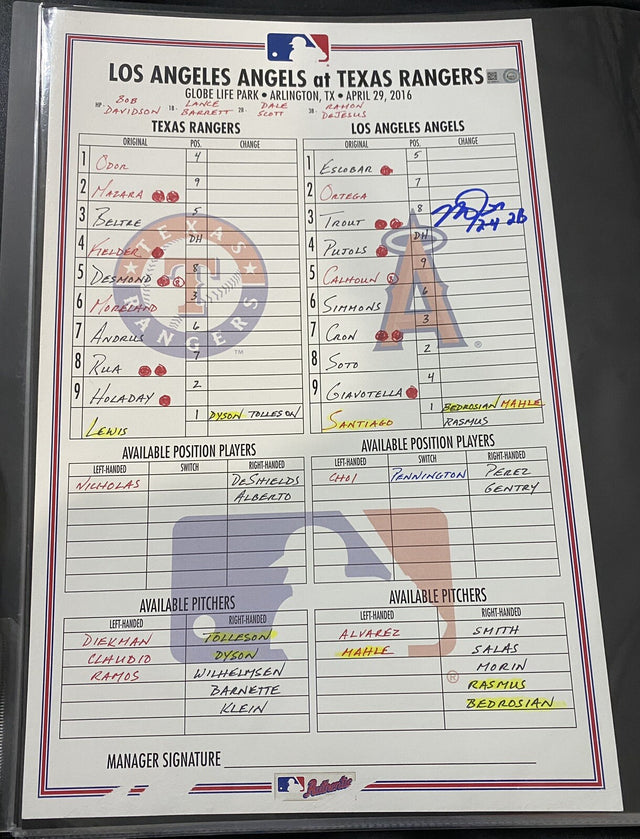 LOS ANGELES ANGELS at TEXAS RANGERS
GLOBE LIFE PARK • ARLINGTON, TX • APRIL 29, 2016
HP- BOB DAVIDSON 1B- LANCE BARRETT 2B- DALE SCOTT 3B- RAMON DEJESUS
TEXAS RANGERS
ORIGINAL POS. CHANGE
1 ODOR 4
2 MAZARA 9
3 BELTRE 5
4 FIELDER DH
5 DESMOND 8
6 MORELAND 3
7 ANDRUS 6
8 RUA 7
9 HOLADAY 2
LEWIS 1 DYSON TOLLESON
TEXAS RANGERS
TM
LOS ANGELES ANGELS
ORIGINAL POS. CHANGE
1 ESCOBAR 5
2 ORTEGA 7
3 TROUT 8
24 2B
4 PUJOLS DH
5 CALHOUN 9
6 SIMMONS 6
7 CRON 3
8 SOTO 2
9 GIAVOTELLA 4
SANTIAGO 1 BEDROSIAN MAHLE
RASMUS
A
®
AVAILABLE POSITION PLAYERS
LEFT-HANDED SWITCH RIGHT-HANDED
NICHOLAS DESHIELDS
ALBERTO
AVAILABLE POSITION PLAYERS
LEFT-HANDED SWITCH RIGHT-HANDED
CHOI PENNINGTON PEREZ
GENTRY
AVAILABLE PITCHERS
LEFT-HANDED RIGHT-HANDED
DIEKMAN TOLLESON
CLAUDIO DYSON
RAMOS WILHELMSEN
BARNETTE
KLEIN
AVAILABLE PITCHERS
LEFT-HANDED RIGHT-HANDED
ALVAREZ SMITH
MAHLE SALAS
MORIN
RASMUS
BEDROSIAN
®
MANAGER SIGNATURE
Authentic